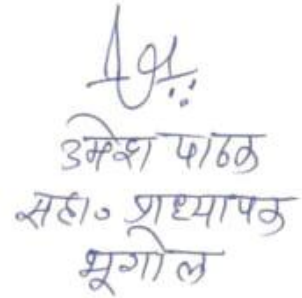 उमेश पाठक
सहा० प्राध्यापक
भूगोल